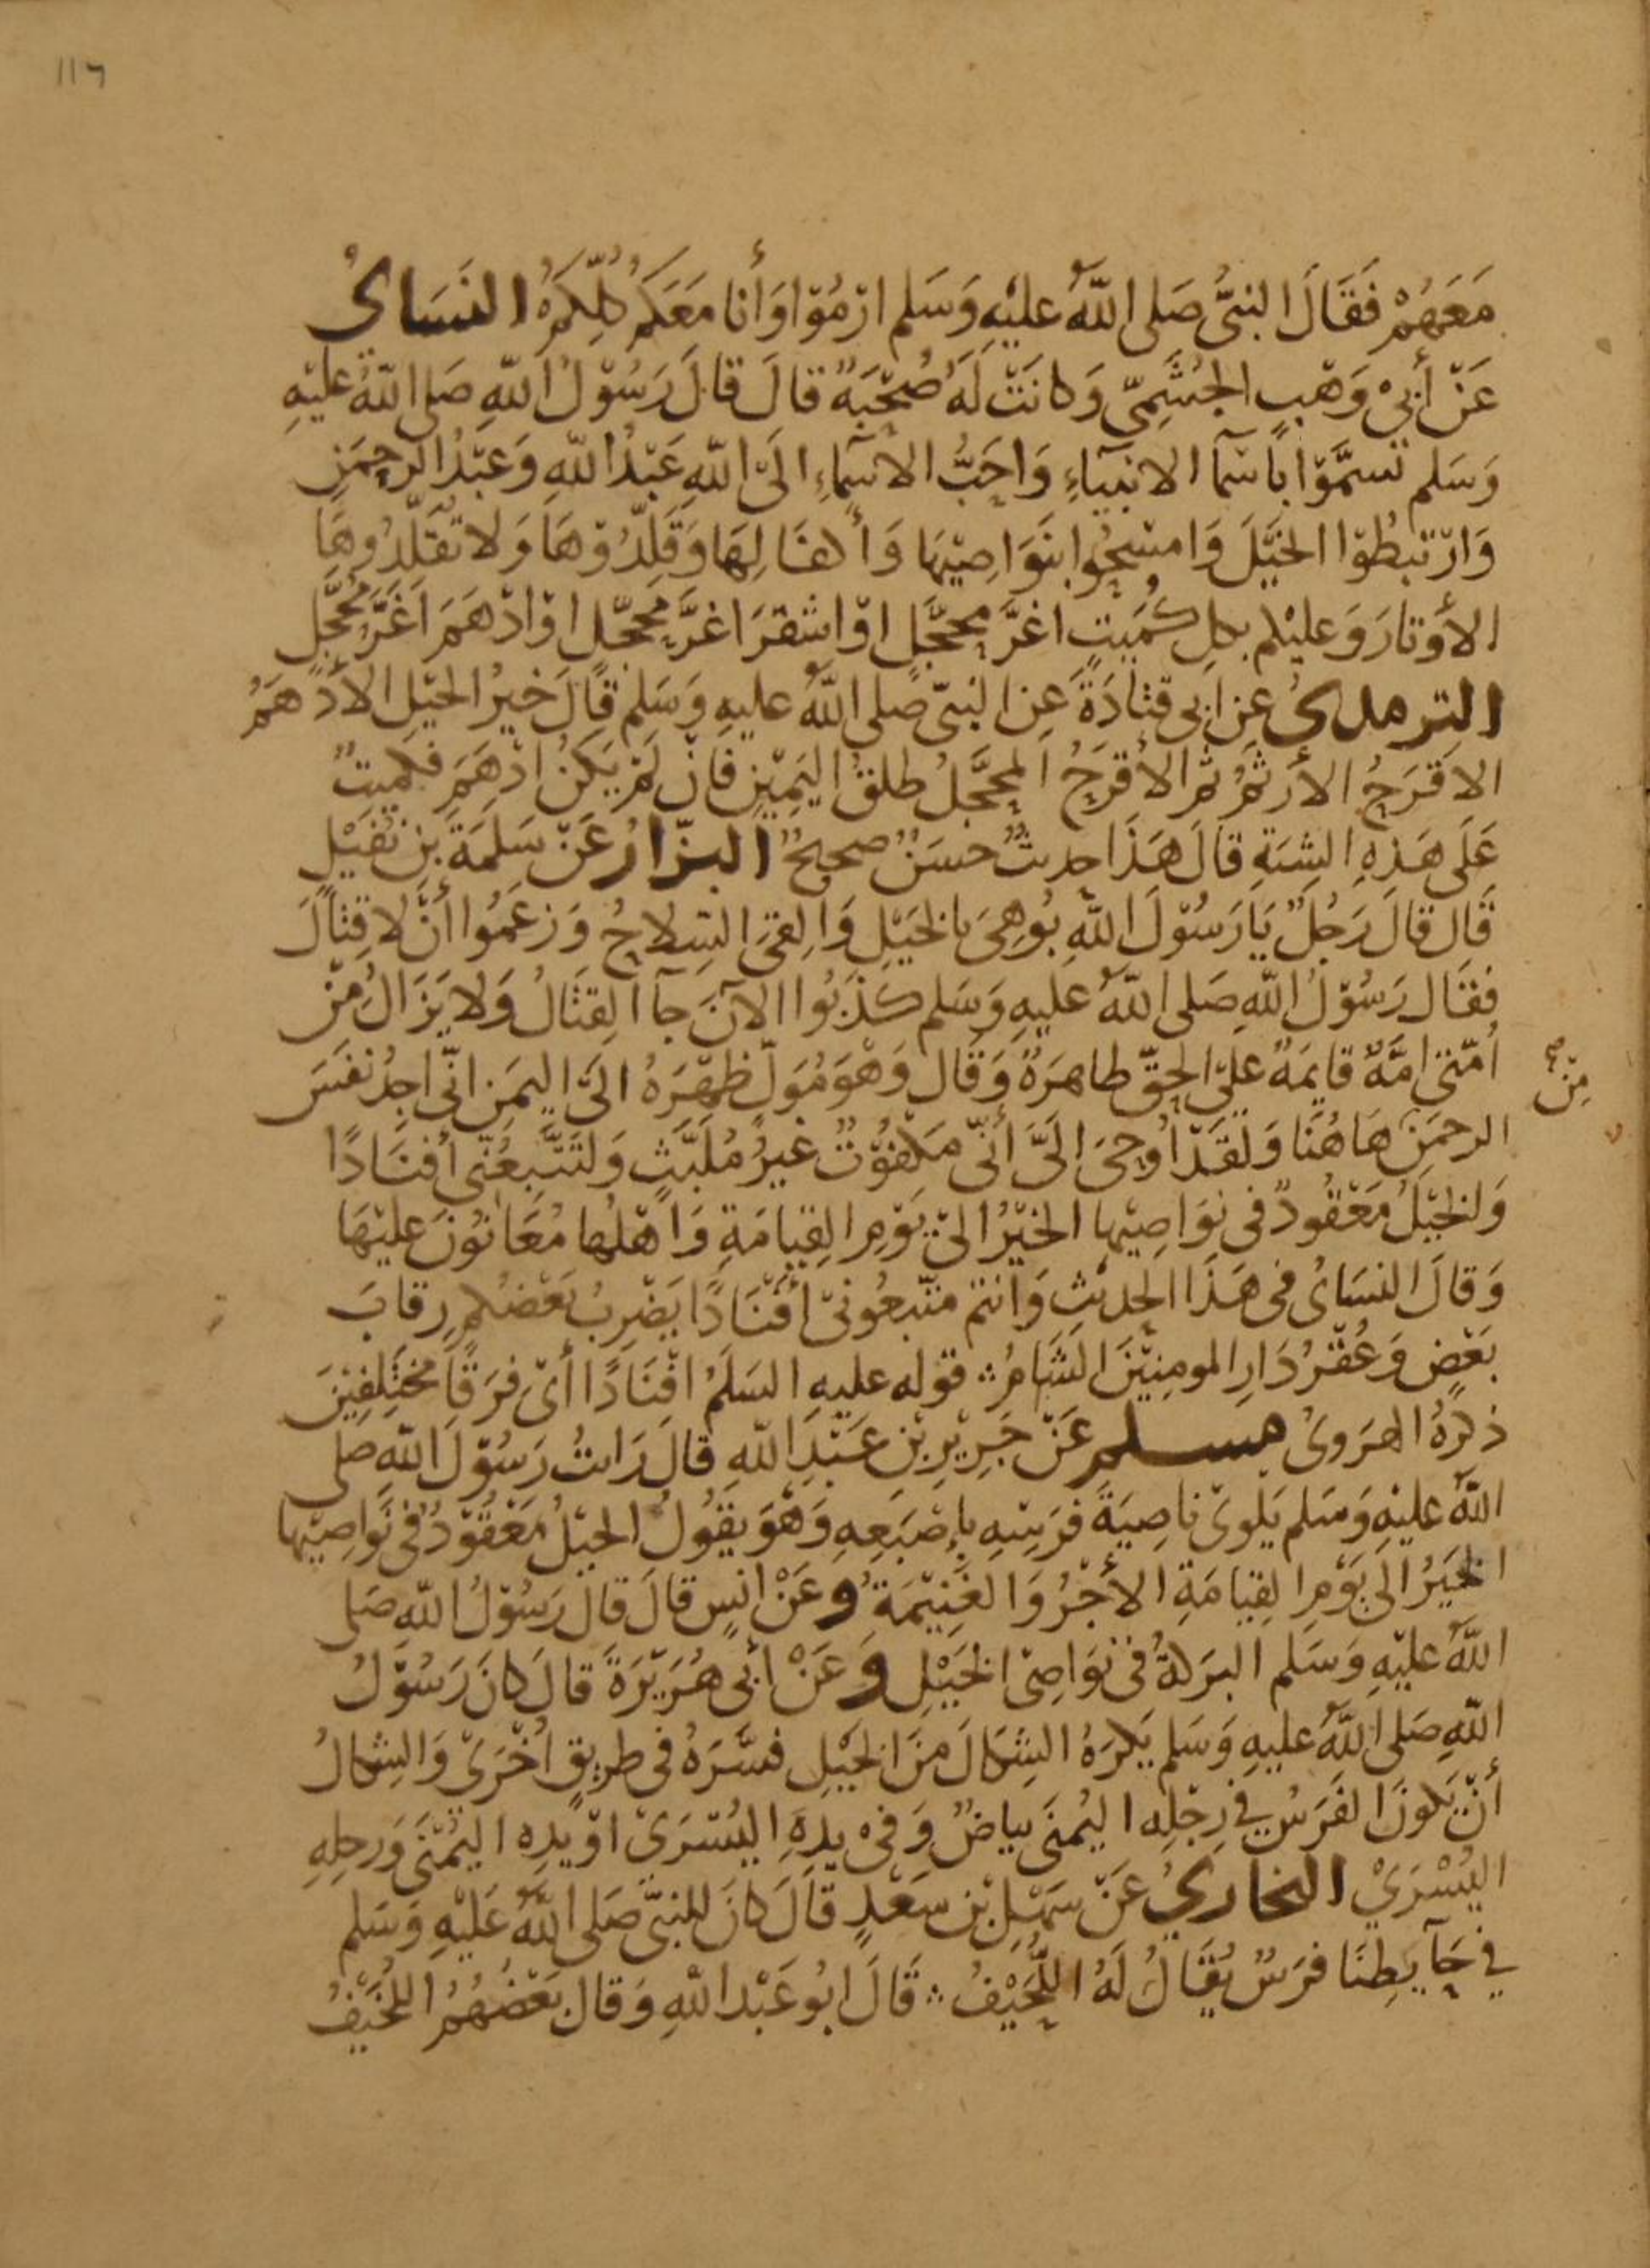 ١١٦
مَعَهُمْ فَقَالَ النبىُّ صَلى اللهُ عليْهِ وَسَلم ارْمُوْا وَأنا مَعَكم كُلِّكمْ النسَاىُ
عَنْ أبىْ وَهْبٍ الجُشَمِىّ وَكانَتْ لَهُ صُحْبَةٌ قالَ قالَ رَسُوْلُ اللهِ صَلى اللهُ عليْهِ
وَسَلم تسمَّوْا بأسْمآ الانبيَاءِ وَاحَبُّ الاسْمآءِ الَىْ اللهِ عَبْدُ اللهِ وَعَبْدُ الرحمَنِ
وَارْتبطُوْا الخيْلَ وَامسَحُوا بنَوَاصِيْهَا وَأكفَالِهَا وَقَلِّدُوْهَا وَلا تُقَلِّدُوهَا
الأوْتارَ وَعليْكم بكلِ كُمَيتٍ اغرَّ محجَّلٍ اوْ اشقرَ اغرَّ محجّل اوْ ادْهَمَ اَغَرَّ مُحجَّلٍ
الترمذىُ عن ابى قتادَةَ عَنِ النبىّ صَلى اللهُ عليهِ وَسَلم قالَ خيرُ الخيْلِ الأدْهَمُ
الاقرَحُ الأرْثمُ ثم الأقرَحُ المحجَّلُ طلقُ اليَمِيْنِ فانْ لَمْ يَكنْ ادْهَمَ فكميتٌ
عَلَى هَذِهِ الشِيَةِ قالَ هَذَا حديثٌ حسَنٌ صحيحٌ البزارُ عَنْ سَلمَةَ بنِ نفيْلٍ
قَال قالَ رَجُلٌ يَا رَسُوْلَ اللهِ بُوهِىَ بالخيْلِ وَالقىَ السِلاحُ وَزعَمُوا أنْ لا قِتالَ
فقَال رَسُوْلُ اللهِ صَلى اللهُ عليهِ وَسَلم كذَبُوا الآنَ جآ القِتَالُ وَلا يَزَالُ مِنْ
أمّتى امَّةٌ قايمَةٌ علىْ الحقّ ظاهرَةٌ وَقَال وَهْوَ مُوَلٍّ ظهْرَهُ الَىْ اليمَنِ انّى اجِدُ نَفسَ
مِنْ صح
الرحمَنِ هَاهُنَا وَلَقَدْ اُوحِىَ الَىَّ أنّى مَكفُوْتٌ غيرُ مُلَبَّثٍ وَلتَتَّبِعُنّى أفنَادًا
وَالخيْلُ مَعْقُودٌ فى نوَاصِيْها الخيْرُ الىْ يَوْمِ القِيامَةِ وَاهْلُها مُعَانُوْنَ عليْهَا
وَقالَ النسَاىُ فى هَذَا الحَديْثِ وَانتم متّبعُونىْ أفْنَادًا يَضْرِبُ بَعْضُكم رِقابَ
بَعْضٍ وَعُقْرُ دَارِ المومِنِيْنَ الشَامُ ۞ قوله عليهِ السَلَمُ افْنَادًا أىْ فِرَقًا مختَلِفِيْنَ
ذكرَهُ الهَرَوىُ مسلم عَنْ جَرِيْرِ بْنِ عَبْدِ اللهِ قالَ رَايتُ رَسُوْلَ اللهِ صلى
اللهُ عليْهِ وَسَلم يَلوىْ ناصِيَةَ فرَسِهِ بإِصْبَعِهِ وَهْوَ يقُولُ الخيْلُ مَعْقُوْدٌ فى نَوَاصِيْها
الخيَرُ الَى يَوْمِ القِيَامَةِ الأجْرُ وَالغَنِيْمَةُ وعَنْ انسٍ قالَ قالَ رَسُوْلُ اللهِ صَلى
اللهُ عليْهِ وَسَلم البَرَكةُ فى نوَاصِىْ الخَيْلِ وَعَنْ أبى هُرَيْرَةَ قالَ كانَ رَسُوْلُ
اللهِ صَلى اللهُ عليهِ وَسَلم يَكرَهُ الشِكَالَ مِنَ الخيْلِ فسَّرَهُ فى طريقٍ اخْرَىْ وَالشِكالُ
أنْ يَكونَ الفَرَسُ في رِجْلِهِ اليُمنَى بياضٌ وَفىْ يدِهِ اليُسْرَىْ اوْ يدِهِ اليُمْنَى وَرجلِهِ
اليُسْرَيْ البخاريُ عَنْ سَهْلِ بْنِ سَعْدٍ قالَ كانَ للنبىّ صَلى اللهُ عَليْهِ وَسَلم
في حَآيطِنَا فرَسٌ يُقَالُ لَهُ اللُّحَيْفُ ۞ قالَ ابُو عَبْد اللهِ وَقال بَعْضُهُمُ اللُّخَيْفُ